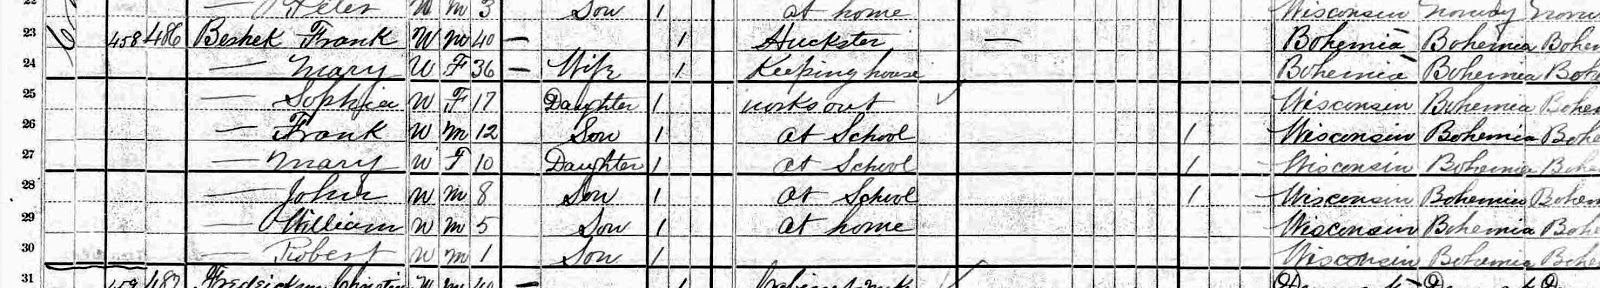 Peter W M 3 Son 1 at home Wisconsin Norway
23 458 486 Beshek Frank W M 40 — 1 Huckster — Bohemia Bohemia Bohem
24 — Mary W F 36 — Wife 1 Keeping house Bohemia Bohemia Bohe
25 — Sophia W F 17 Daughter 1 works out Wisconsin Bohemia Bohem
26 — Frank W M 12 Son 1 at School 1 Wisconsin Bohemia Bohe
27 — Mary W F 10 Daughter 1 at School 1 Wisconsin Bohemia Bohe
28 — John W M 8 Son 1 at School 1 Wisconsin Bohemia Bohem
29 — William W M 5 Son 1 at home Wisconsin Bohemia Bohe
30 — Robert W M 1 Son 1 Wisconsin Bohemia Bohe
31 459 487 W M